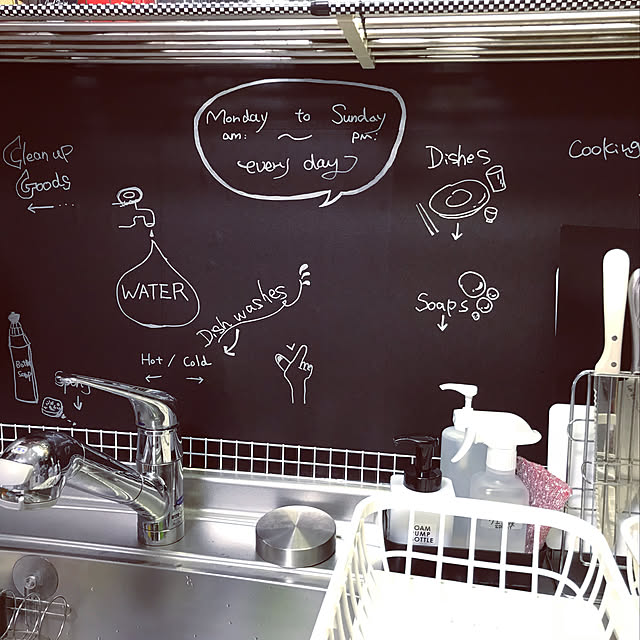 Monday to Sunday
am: ~ pm:
every day
Clean up
Goods
Dishes
Cooking
WATER
Dish washes
Soaps
Hot / Cold
Soap
FOAM
PUMP
BOTTLE